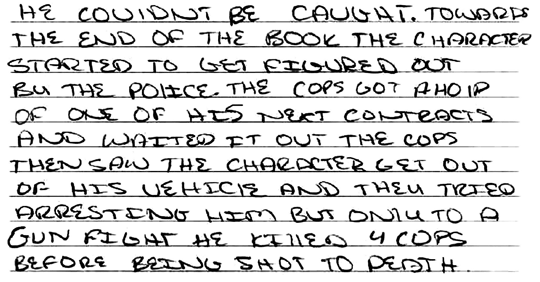 HE COULDNT BE CAUGHT. TOWARDS
THE END OF THE BOOK THE CHARACTER
STARTED TO GET FIGURED OUT
BY THE POLICE. THE COPS GOT AHOLD
OF ONE OF HIS NEXT CONTRACTS
AND WAITED IT OUT THE COPS
THEN SAW THE CHARACTER GET OUT
OF HIS VEHICLE AND THEY TRIED
ARRESTING HIM BUT ONLY TO A
GUN FIGHT HE KILLED 4 COPS
BEFORE BEING SHOT TO DEATH.